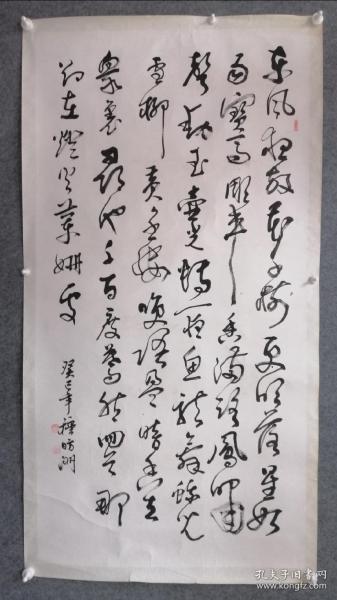 东风夜放花千树更吹落星如
雨宝马雕车香满路凤箫
声动玉壶光转一夜鱼龙舞蛾儿
雪柳黄金缕笑语盈盈暗香去
众里寻他千百度蓦然回首那
人却在灯火阑珊处
癸巳年
孔夫子旧书网
www.kongfz.com